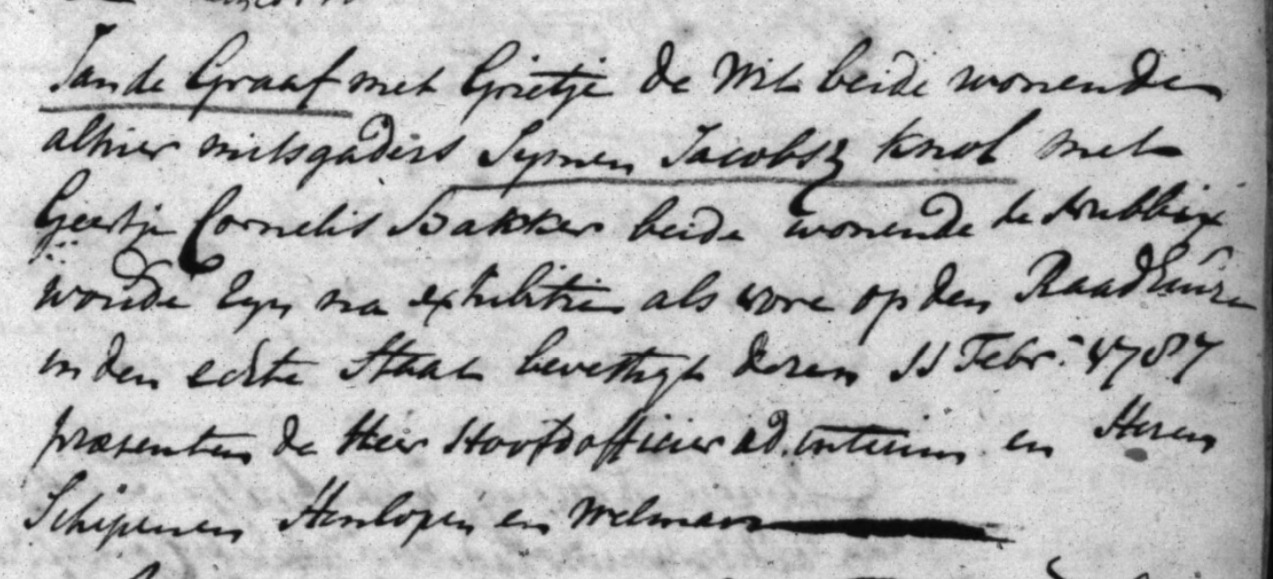 Jan de Graaf met Grietje de Wit beide wonende
alhier mitsgaders Symen Jacobsz Knol met
Geertje Cornelis Bakker beide wonende te Schubbige
woude Zyn na exhibitie als vore op den Raadhuize
in den echte Staat bevestigt dezen 11 Febr: 1787
præsenten de Heer Hoofdofficier ad interim en Heren
Schepenen Henlopen en Welman